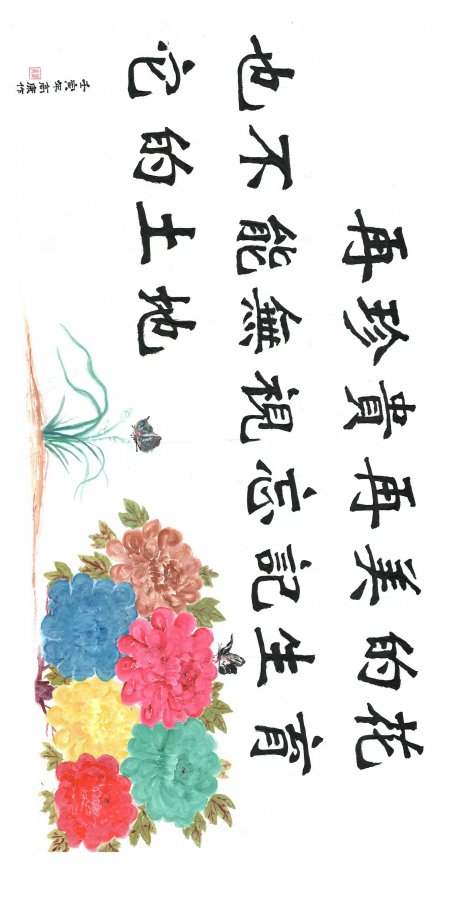 再珍貴再美的花
也不能無視忘記生育
它的土地
壬寅年康作